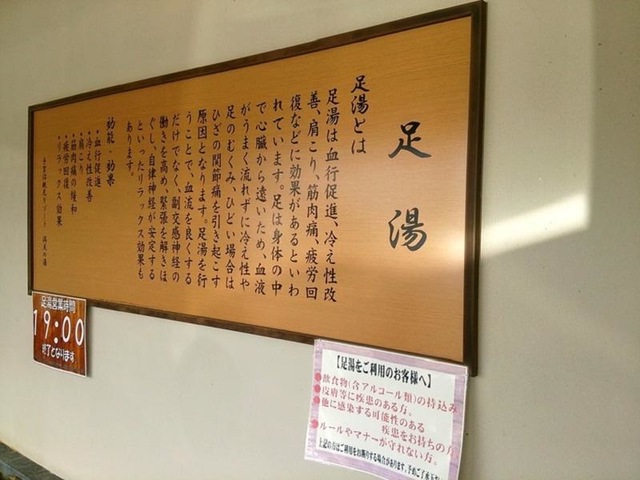 足湯
足湯とは
足湯は血行促進、冷え性改
善、肩こり、筋肉痛、疲労回
復などに効果があるといわ
れています。足は身体の中
で心臓から遠いため、血液
がうまく流れずに冷え性や
足のむくみ、ひどい場合は
ひざの関節痛を引き起こす
原因となります。足湯を行
うことで、血流を良くする
だけでなく、副交感神経の
働きを高め、緊張を解きほ
ぐし、自律神経が安定する
といったリラックス効果も
あります。
効能・効果
・血行促進
・冷え性改善
・肩こり
・筋肉痛の緩和
・疲労回復
・リラックス効果
足湯営業時間
19:00
終了となります
【足湯をご利用のお客様へ】
●飲食物(含アルコール類)の持込み
●皮膚等に疾患のある方。
●他に感染する可能性のある
疾患をお持ちの方
●ルールやマナーが守れない方。
上記の方はご利用をお断りする場合があります。予めご了承下さい